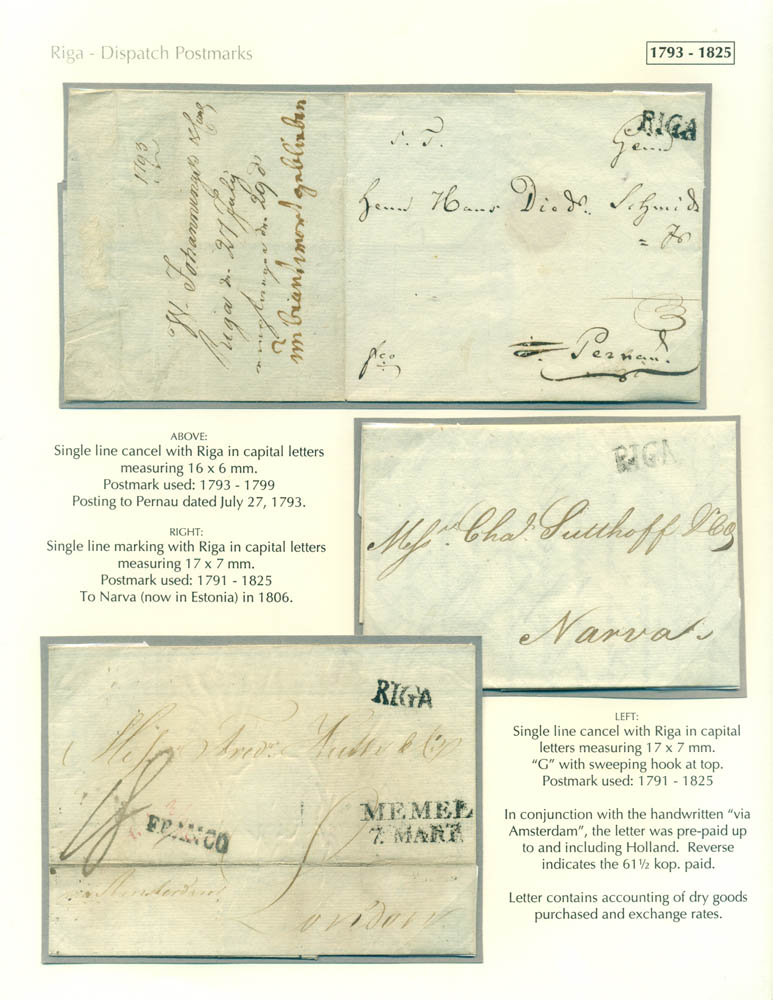 Riga - Dispatch Postmarks
1793 - 1825
1793
Riga d. 27 July
RIGA
S. T.
Herrn Hans Diedr. Schmidt
fco
Pernau
ABOVE:
Single line cancel with Riga in capital letters
measuring 16 x 6 mm.
Postmark used: 1793 - 1799
Posting to Pernau dated July 27, 1793.
RIGHT:
Single line marking with Riga in capital letters
measuring 17 x 7 mm.
Postmark used: 1791 - 1825
To Narva (now in Estonia) in 1806.
RIGA
Messrs. Chas. Sutthoff & Co
Narva
RIGA
MEMEL
7. MART.
FRANCO
via Amsterdam
London
LEFT:
Single line cancel with Riga in capital
letters measuring 17 x 7 mm.
“G” with sweeping hook at top.
Postmark used: 1791 - 1825
In conjunction with the handwritten “via
Amsterdam”, the letter was pre-paid up
to and including Holland.  Reverse
indicates the 61½ kop. paid.
Letter contains accounting of dry goods
purchased and exchange rates.